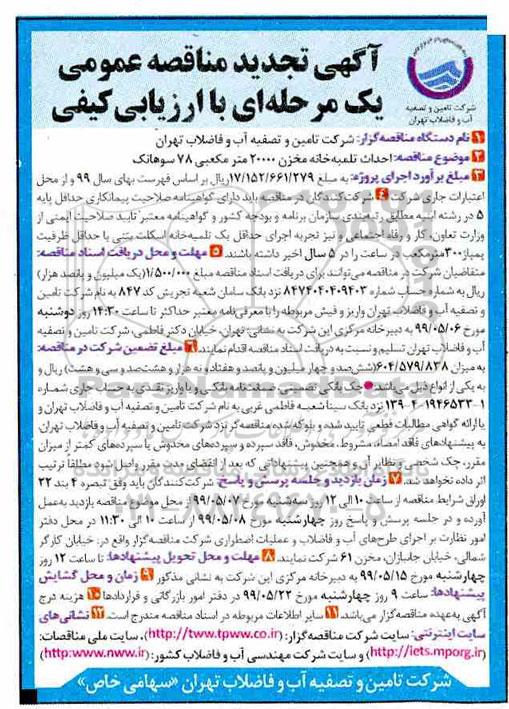 آگهی تجدید مناقصه عمومی
یک مرحله‌ای با ارزیابی کیفی
شرکت تامین و تصفیه
آب و فاضلاب تهران
1 نام دستگاه مناقصه‌گزار: شرکت تامین و تصفیه آب و فاضلاب تهران
2 موضوع مناقصه: احداث تلمبه‌خانه مخزن ۲۰۰۰۰ متر مکعبی ۷۸ سوهانک
3 مبلغ برآورد اجرای پروژه: به مبلغ ۱۷/۱۵۲/۶۶۱/۲۷۹ ریال بر اساس فهرست بهای سال ۹۹ و از محل
اعتبارات جاری شرکت 4 شرکت‌کنندگان در مناقصه باید دارای گواهینامه صلاحیت پیمانکاری حداقل پایه
۵ در رشته ابنیه مطابق رتبه‌بندی سازمان برنامه و بودجه کشور و گواهینامه معتبر تایید صلاحیت ایمنی از
وزارت تعاون، کار و رفاه اجتماعی و نیز تجربه اجرای حداقل یک تلمبه‌خانه اسکلت بتنی با حداقل ظرفیت
پمپاژ ۳۰۰ مترمکعب در ساعت را در ۵ سال اخیر داشته باشند. 5 مهلت و محل دریافت اسناد مناقصه:
متقاضیان شرکت در مناقصه می‌توانند برای دریافت اسناد مناقصه مبلغ ۱/۵۰۰/۰۰۰ (یک میلیون و پانصد هزار)
ریال به شماره حساب شماره ۸۴۷۴۰۴۰۴۰۹۴۰۳ نزد بانک سامان شعبه تجریش کد ۸۴۷ به نام شرکت تامین
و تصفیه آب و فاضلاب تهران واریز و فیش مربوطه را با معرفی‌نامه معتبر حداکثر تا ساعت ۱۴:۳۰ روز دوشنبه
مورخ ۹۹/۰۵/۰۶ به دبیرخانه مرکزی این شرکت به نشانی: تهران، خیابان دکتر فاطمی، شرکت تامین و تصفیه
آب و فاضلاب تهران تسلیم و نسبت به دریافت اسناد مناقصه اقدام نمایند. 6 مبلغ تضمین شرکت در مناقصه:
به میزان ۶۰۴/۵۷۹/۸۳۸ (شش‌صد و چهار میلیون و پانصد و هفتاد و نه هزار و هشت‌صد و سی و هشت) ریال و
به یکی از انواع ذیل می‌باشد: ● چک بانکی تضمینی، ضمانت‌نامه بانکی و یا واریز نقدی به حساب جاری شماره
۱۳۹-۴-۱۹۴۶۵۳۳-۱ نزد بانک سینا شعبه فاطمی غربی به نام شرکت تامین و تصفیه آب و فاضلاب تهران و
یا ارائه گواهی مطالبات قطعی تایید شده و بلوکه شده مناقصه‌گر نزد شرکت تامین و تصفیه آب و فاضلاب تهران
به پیشنهادهای فاقد امضاء، مشروط، مخدوش، فاقد سپرده و سپرده‌های مخدوش یا سپرده‌های کمتر از میزان
مقرر، چک شخصی و نظایر آن و همچنین پیشنهاداتی که بعد از انقضای مدت مقرر واصل شود مطلقا ترتیب
اثر داده نخواهد شد. 7 زمان بازدید و جلسه پرسش و پاسخ: شرکت‌کنندگان باید وفق تبصره ۴ بند ۲۲
اوراق شرایط مناقصه از ساعت ۱۰ الی ۱۲ روز سه‌شنبه مورخ ۹۹/۰۵/۰۷ از محل موضوع مناقصه بازدید به‌عمل
آورده و در جلسه پرسش و پاسخ روز چهارشنبه مورخ ۹۹/۰۵/۰۸ از ساعت ۱۰ الی ۱۱:۳۰ در محل دفتر
امور نظارت بر اجرای طرح‌های آب و فاضلاب و عملیات اضطراری شرکت مناقصه‌گزار واقع در: خیابان کارگر
شمالی، خیابان جانبازان، مخزن ۶۱ شرکت نمایند. 8 مهلت و محل تحویل پیشنهادها: تا ساعت ۱۲ روز
چهارشنبه مورخ ۹۹/۰۵/۱۵ به دبیرخانه مرکزی این شرکت به نشانی مذکور 9 زمان و محل گشایش
پیشنهادها: ساعت ۹ روز چهارشنبه مورخ ۹۹/۰۵/۲۲ در دفتر امور بازرگانی و قراردادها 10 هزینه درج
آگهی به‌عهده مناقصه‌گزار می‌باشد. 11 سایر اطلاعات مربوطه در اسناد مناقصه مندرج است. 12 نشانی‌های
سایت اینترنتی: سایت شرکت مناقصه‌گزار: (http://tww.tpww.co.ir)، سایت ملی مناقصات:
(http://iets.mporg.ir) و سایت شرکت مهندسی آب و فاضلاب کشور: (http:www.nww.ir)
شرکت تامین و تصفیه آب و فاضلاب تهران «سهامی خاص»